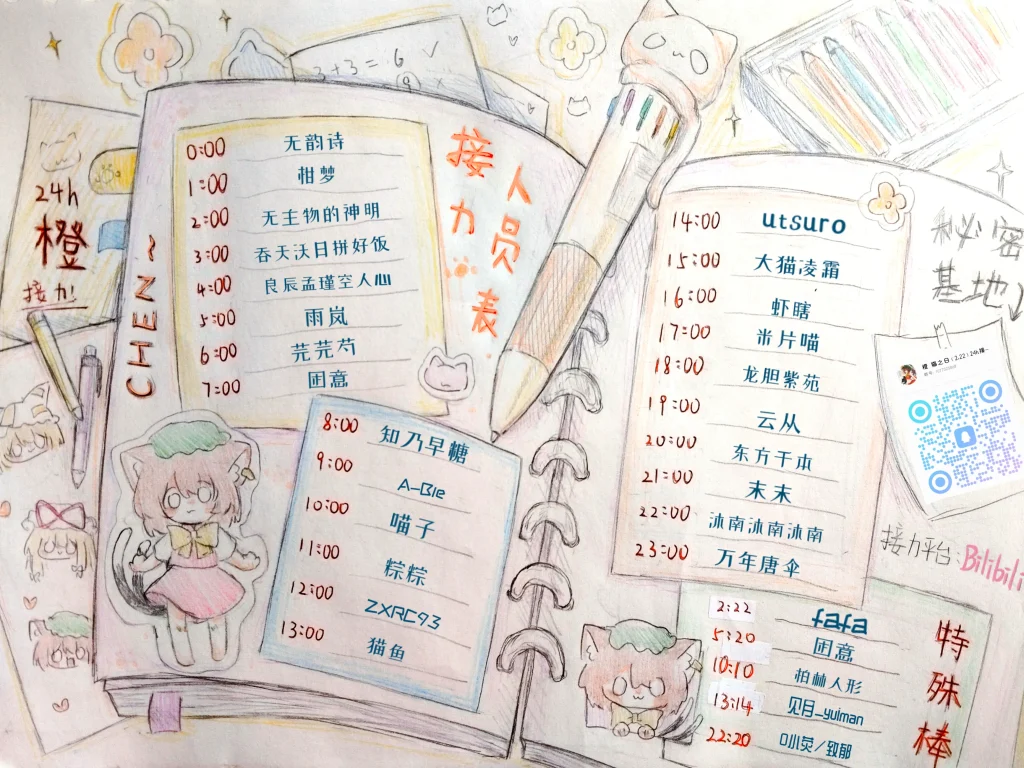 3+3=6 ✓
24h
橙
接力!
CHEN~
接力
人员表
0:00 无韵诗
1:00 柑梦
2:00 无主物的神明
3:00 吞天沃日拼好饭
4:00 良辰孟瑾空人心
5:00 雨岚
6:00 芫芫芍
7:00 困意
8:00 知乃早糖
9:00 A-Ble
10:00 喵子
11:00 粽粽
12:00 ZXRC93
13:00 猫鱼
14:00 utsuro
15:00 大猫凌霜
16:00 虾瞎
17:00 米片喵
18:00 龙胆紫苑
19:00 云从
20:00 东方千本
21:00 末末
22:00 沐南沐南沐南
23:00 万年唐伞
秘密
基地
接力平台:Bilibili
特殊棒
2:22 fafa
5:20 困意
10:10 柏林人形
13:14 见月_yuiman
22:20